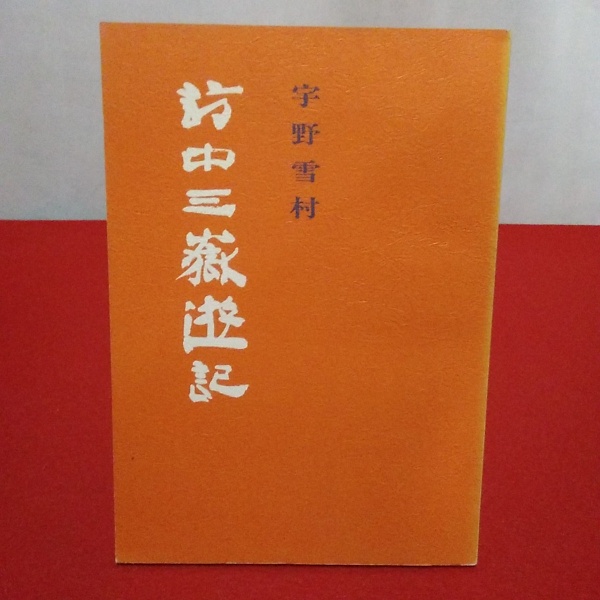 宇野雪村
訪中三嶽遊記